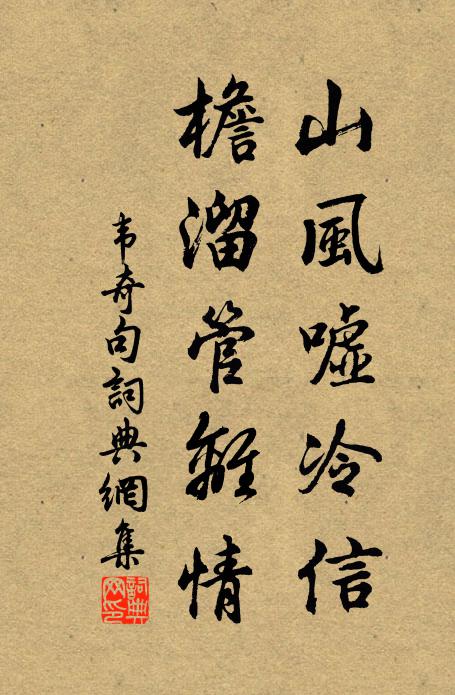 山風噓冷信
檐溜管離情
韦奇句詞典網集
詞典网印